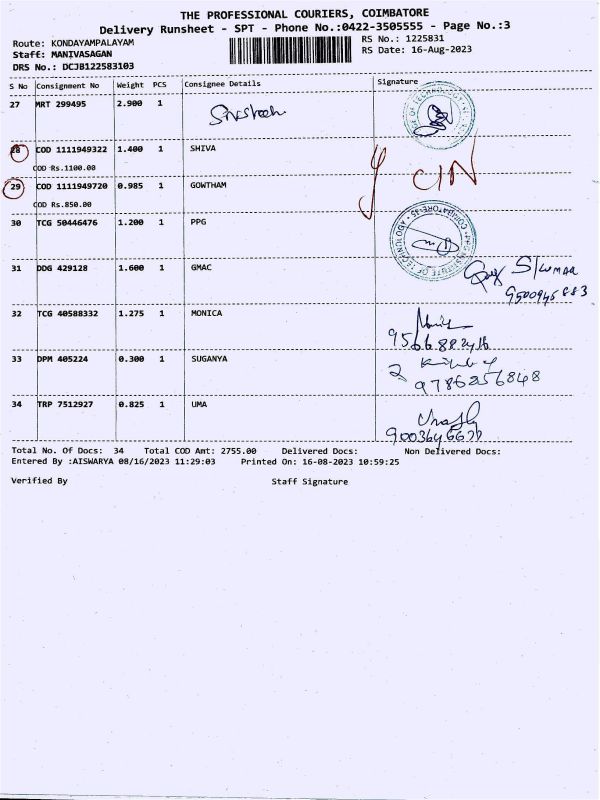 THE PROFESSIONAL COURIERS, COIMBATORE
Delivery Runsheet - SPT - Phone No.:0422-3505555 - Page No.:3
Route: KONDAYAMPALAYAM
RS No.: 1225831
Staff: MANIVASAGAN
RS Date: 16-Aug-2023
DRS No.: DCJB122583103
S No Consignment No Weight PCS Consignee Details Signature
27 MRT 299495 2.900 1
28 COD 1111949322 1.400 1 SHIVA
COD Rs.1100.00
29 COD 1111949720 0.985 1 GOWTHAM
COD Rs.850.00
30 TCG 50446476 1.200 1 PPG
31 DDG 429128 1.600 1 GMAC
S/KUMAR
9500945883
32 TCG 40588332 1.275 1 MONICA
33 DPM 405224 0.300 1 SUGANYA
9786256848
34 TRP 7512927 0.825 1 UMA
Total No. Of Docs: 34 Total COD Amt: 2755.00 Delivered Docs: Non Delivered Docs:
Entered By :AISWARYA 08/16/2023 11:29:03 Printed On: 16-08-2023 10:59:25
Verified By Staff Signature